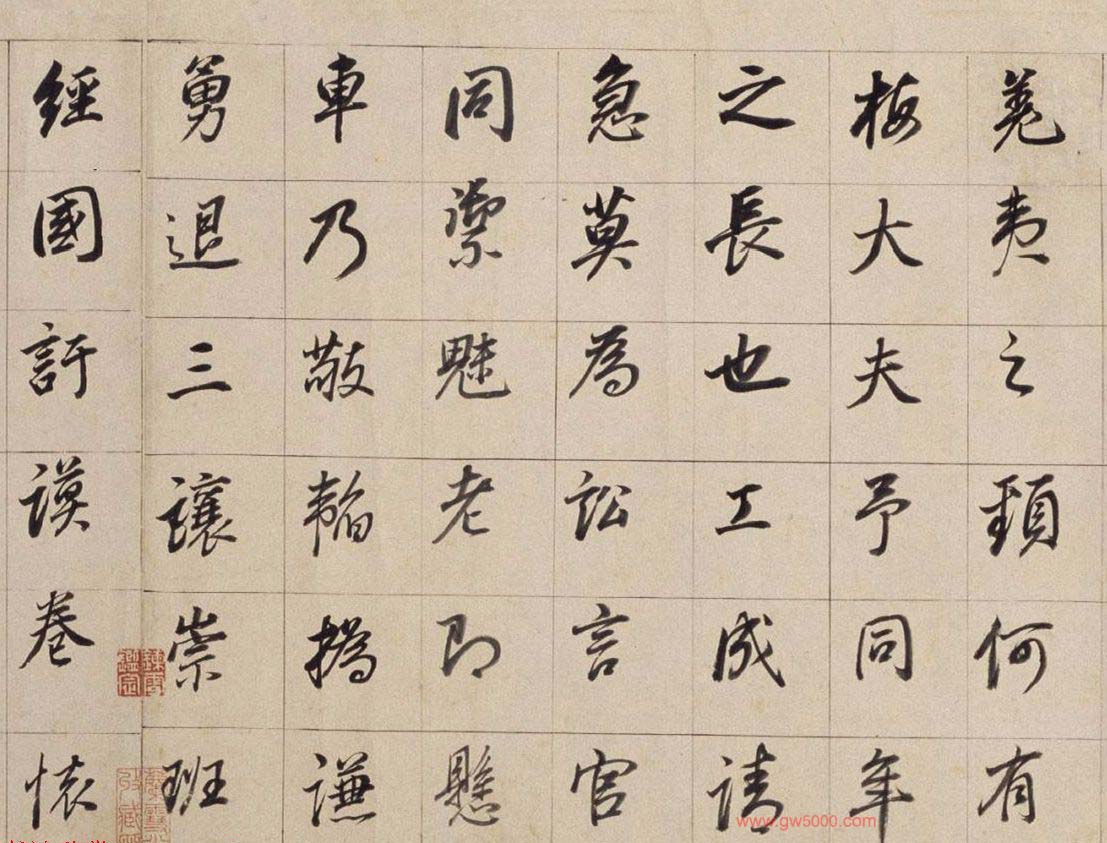 羌夷之頸何有
梅大夫予同年
之長也工成請
急莫為訟言官
同禦魅老即懸
車乃敬韜撝謙
勇退三讓崇班
經國訏謨卷懷
www.gw5000.com